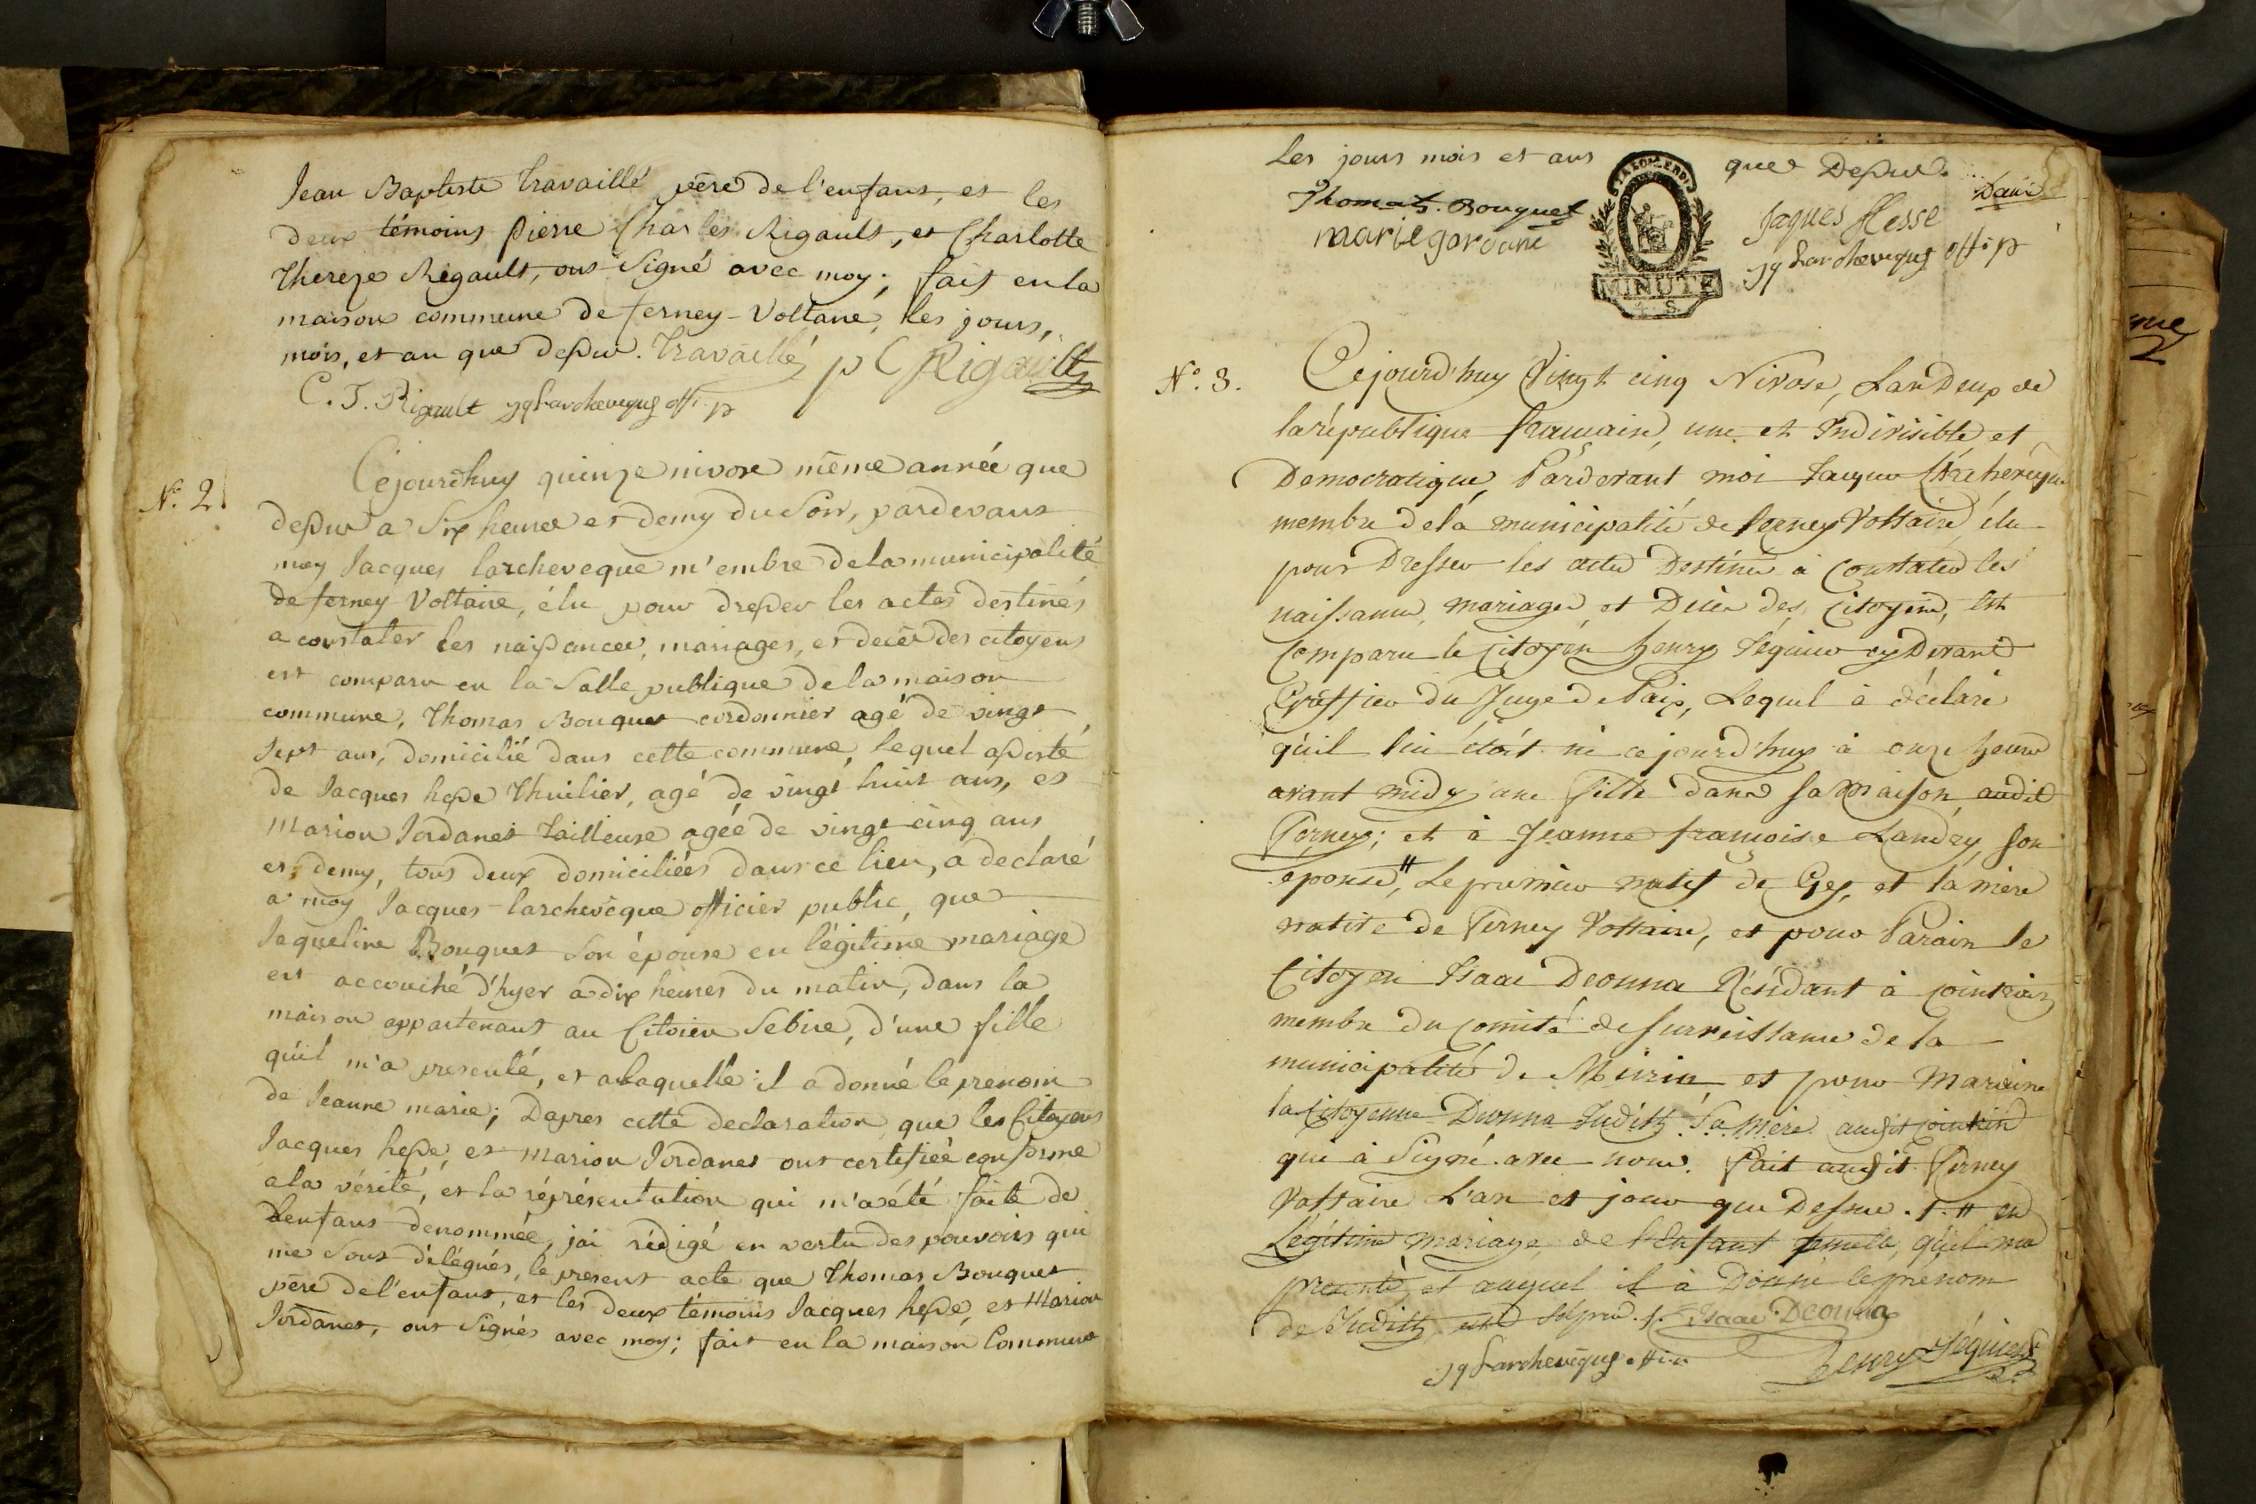 Jean Baptiste Travaillé père de l'enfant, et les
deux témoins pierre Charles Rigault, et Charlotte
Thereze Rigault, ont Signé avec moy; fait en la
maison commune de ferney-Voltaire, les jours,
mois, et an que dessus. Travaillé p C Rigault
C. T. Rigault jq Larcheveque off. p
N.° 2
Cejourd'huy quinze nivose même année que
dessus a Six heures et demy du Soir, pardevant
moy Jacques larcheveque m'embre de la municipalité
de ferney Voltaire, élu pour dresser les actes destinés
a constater les naissances, mariages, et decès des citoyens
est comparu en la Salle publique de la maison
commune, Thomas Bouquet cordonnier agé de vingt
sept ans, domicilié dans cette commune, lequel assisté
de Jacques hesse Thuilier, agé de vingt huit ans, et
Marion Jordanet tailleuse agée de vingt cinq ans
et demy, tous deux domiciliées dans ce lieu, a declaré
a moy Jacques-larchevêque officier public, que
Jaqueline Bouquet Son épouse en légitime mariage
est accouché d'hyer a dix heures du matin, dans la
maison appartenant au Citoien Sebire, d'une fille
qu'il m'a presenté, et a laquelle il a donné le prenom
de Jeanne marie; Dapres cette declaration que les Citoyens
Jacques hesse, et Marion Jordanet ont certifiée conforme
a la vérité, et la réprésentation qui m'a été faite de
l'enfant dénommée, jai rédigé en vertu des pouvoirs qui
me Sont délégués, le present acte que Thomas Bouquet
père de l'enfant, et les deux témoins Jacques hesse, et Marion
Jordanet, ont Signés avec moy; fait en la maison Commune
Les jours mois et ans que Dessus.
Thomas Bouquet
Jaques Hesse
marie gordane
jq Larcheveque off. p
MINUTE
4. S.
N.° 3.
Cejourd'huy Vingt cinq Nivose, L'an Deux de
la république française, une et Indivisible et
Democratique, Pardevant moi Jacques L'Archevêque
membre de la municipalité de ferney Voltaire élu
pour Dresser les actes Destinés à Constater les
naissances, mariages et Décès des Citoyens, Est
Comparu le Citoyen henry Séguier cy Devant
Greffier du Juge de Paix, Lequel à déclaré
qu'il lui étoit né cejourd'huy à onze heures
avant midy une fille dans sa maison audit
Ferney; et à Jeanne françoise Landry son
épouse,# Le premier natif de Gex, et la mère
native de Ferney Voltaire, et pour Parain le
Citoyen Isaac Deonna Résidant à Cointrin
membre du Comité de surveillance de la
municipalité de Meirin et pour Maraine
la Citoyenne Deonna Judith Sa Mère audit Cointrin
qui à Signé avec nous. Fait audit Ferney
Voltaire L'an et jour que Dessus. # en
Légitime mariage de l'Enfant femelle, qu'il ma
presenté, et auquel il à Donné le prénom
de Judith Isaac Deonna
jq Larchevêque off. p
henry Séguier